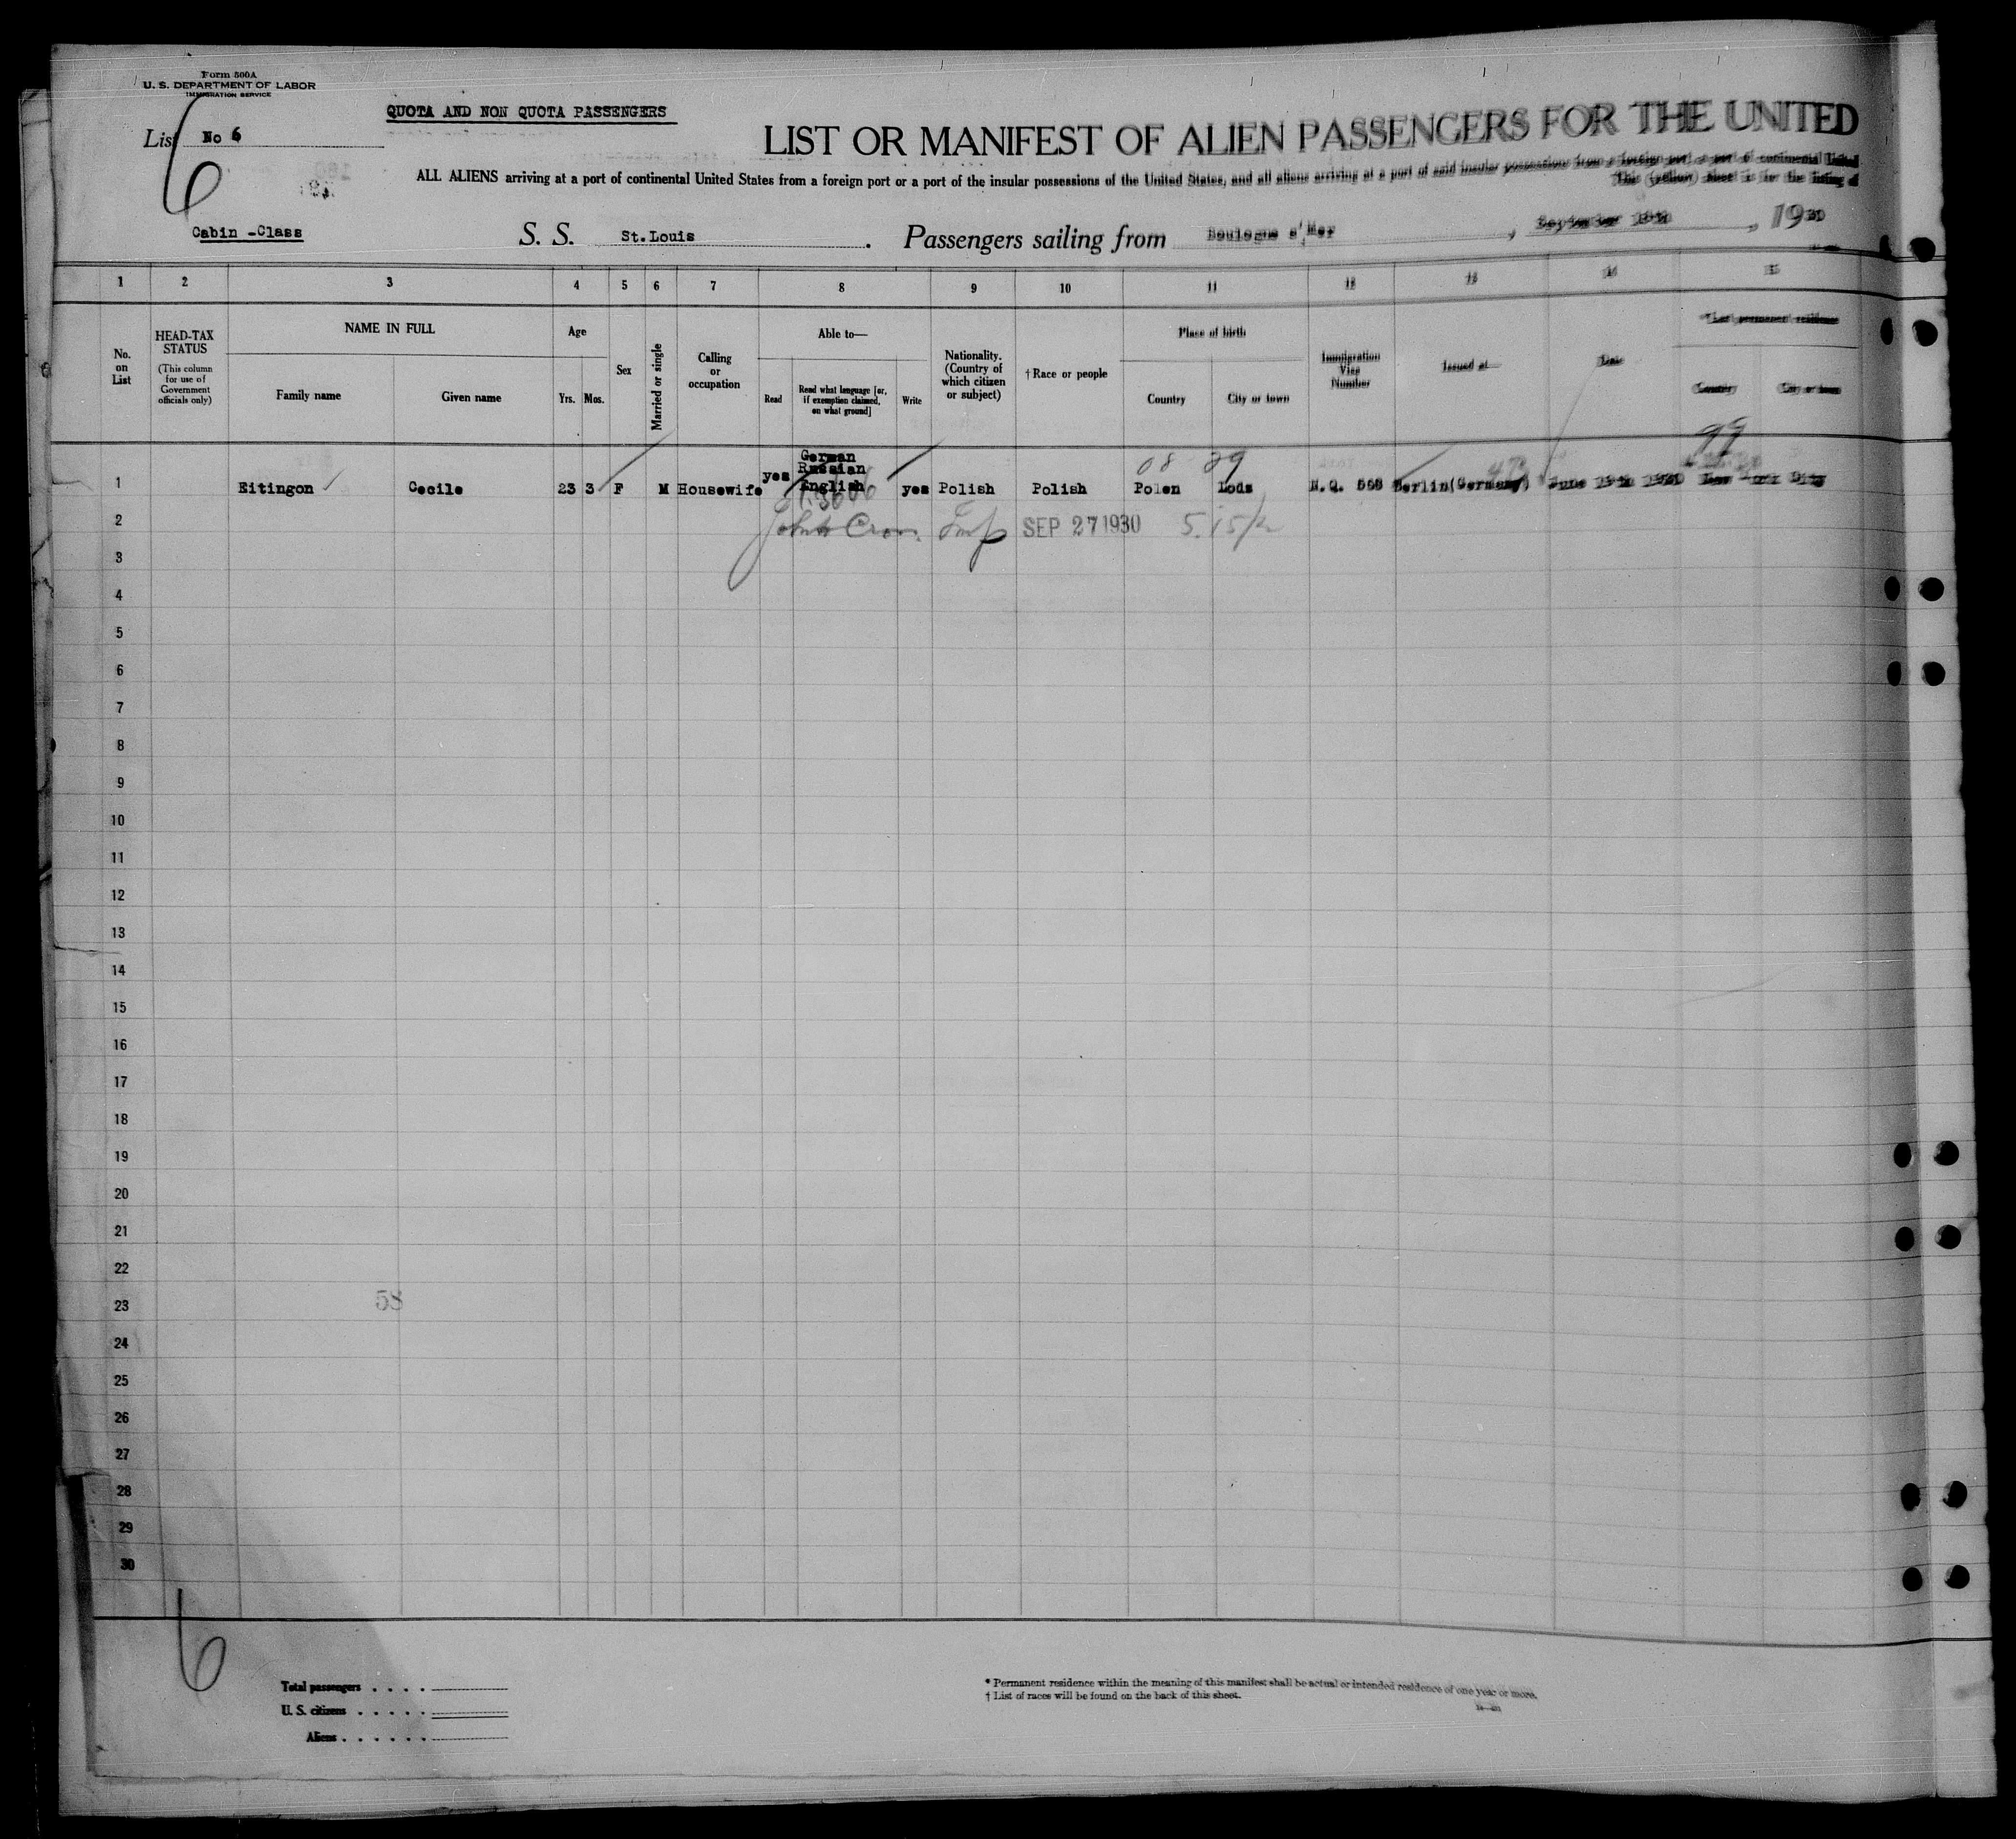 Form 500A
U. S. DEPARTMENT OF LABOR
IMMIGRATION SERVICE
QUOTA AND NON QUOTA PASSENGERS
List No 6
6
LIST OR MANIFEST OF ALIEN PASSENGERS FOR THE UNITED
ALL ALIENS arriving at a port of continental United States from a foreign port or a port of the insular possessions of the United States, and all aliens arriving at a port of said insular possessions from a foreign port, a port of continental United
This (yellow) sheet is for the listing of
Cabin -Class
S. S. St.Louis . Passengers sailing from Boulogne s'Mer , September 19 30
1 2 3 4 5 6 7 8 9 10 11 12 13 14 15
No. on List
HEAD-TAX STATUS
(This column for use of Government officials only)
NAME IN FULL
Family name Given name
Age
Yrs. Mos.
Sex
Married or single
Calling or occupation
Able to—
Read
Read what language [or, if exemption claimed, on what ground]
Write
Nationality. (Country of which citizen or subject)
† Race or people
Place of birth
Country City or town
Immigration Visa Number
Issued at—
Date
*Last permanent residence
Country City or town
99
08 29
1 Eitingon Cecile 23 3 F M Housewife yes German Russian English yes Polish Polish Polen Lods N.Q. Berlin(Germany) June 1930 New York City
2 SEP 27 1930
3
4
5
6
7
8
9
10
11
12
13
14
15
16
17
18
19
20
21
22
23
58
24
25
26
27
28
29
30
6
Total passengers . . . .
U. S. citizens . . . . .
Aliens . . . . . .
* Permanent residence within the meaning of this manifest shall be actual or intended residence of one year or more.
† List of races will be found on the back of this sheet.